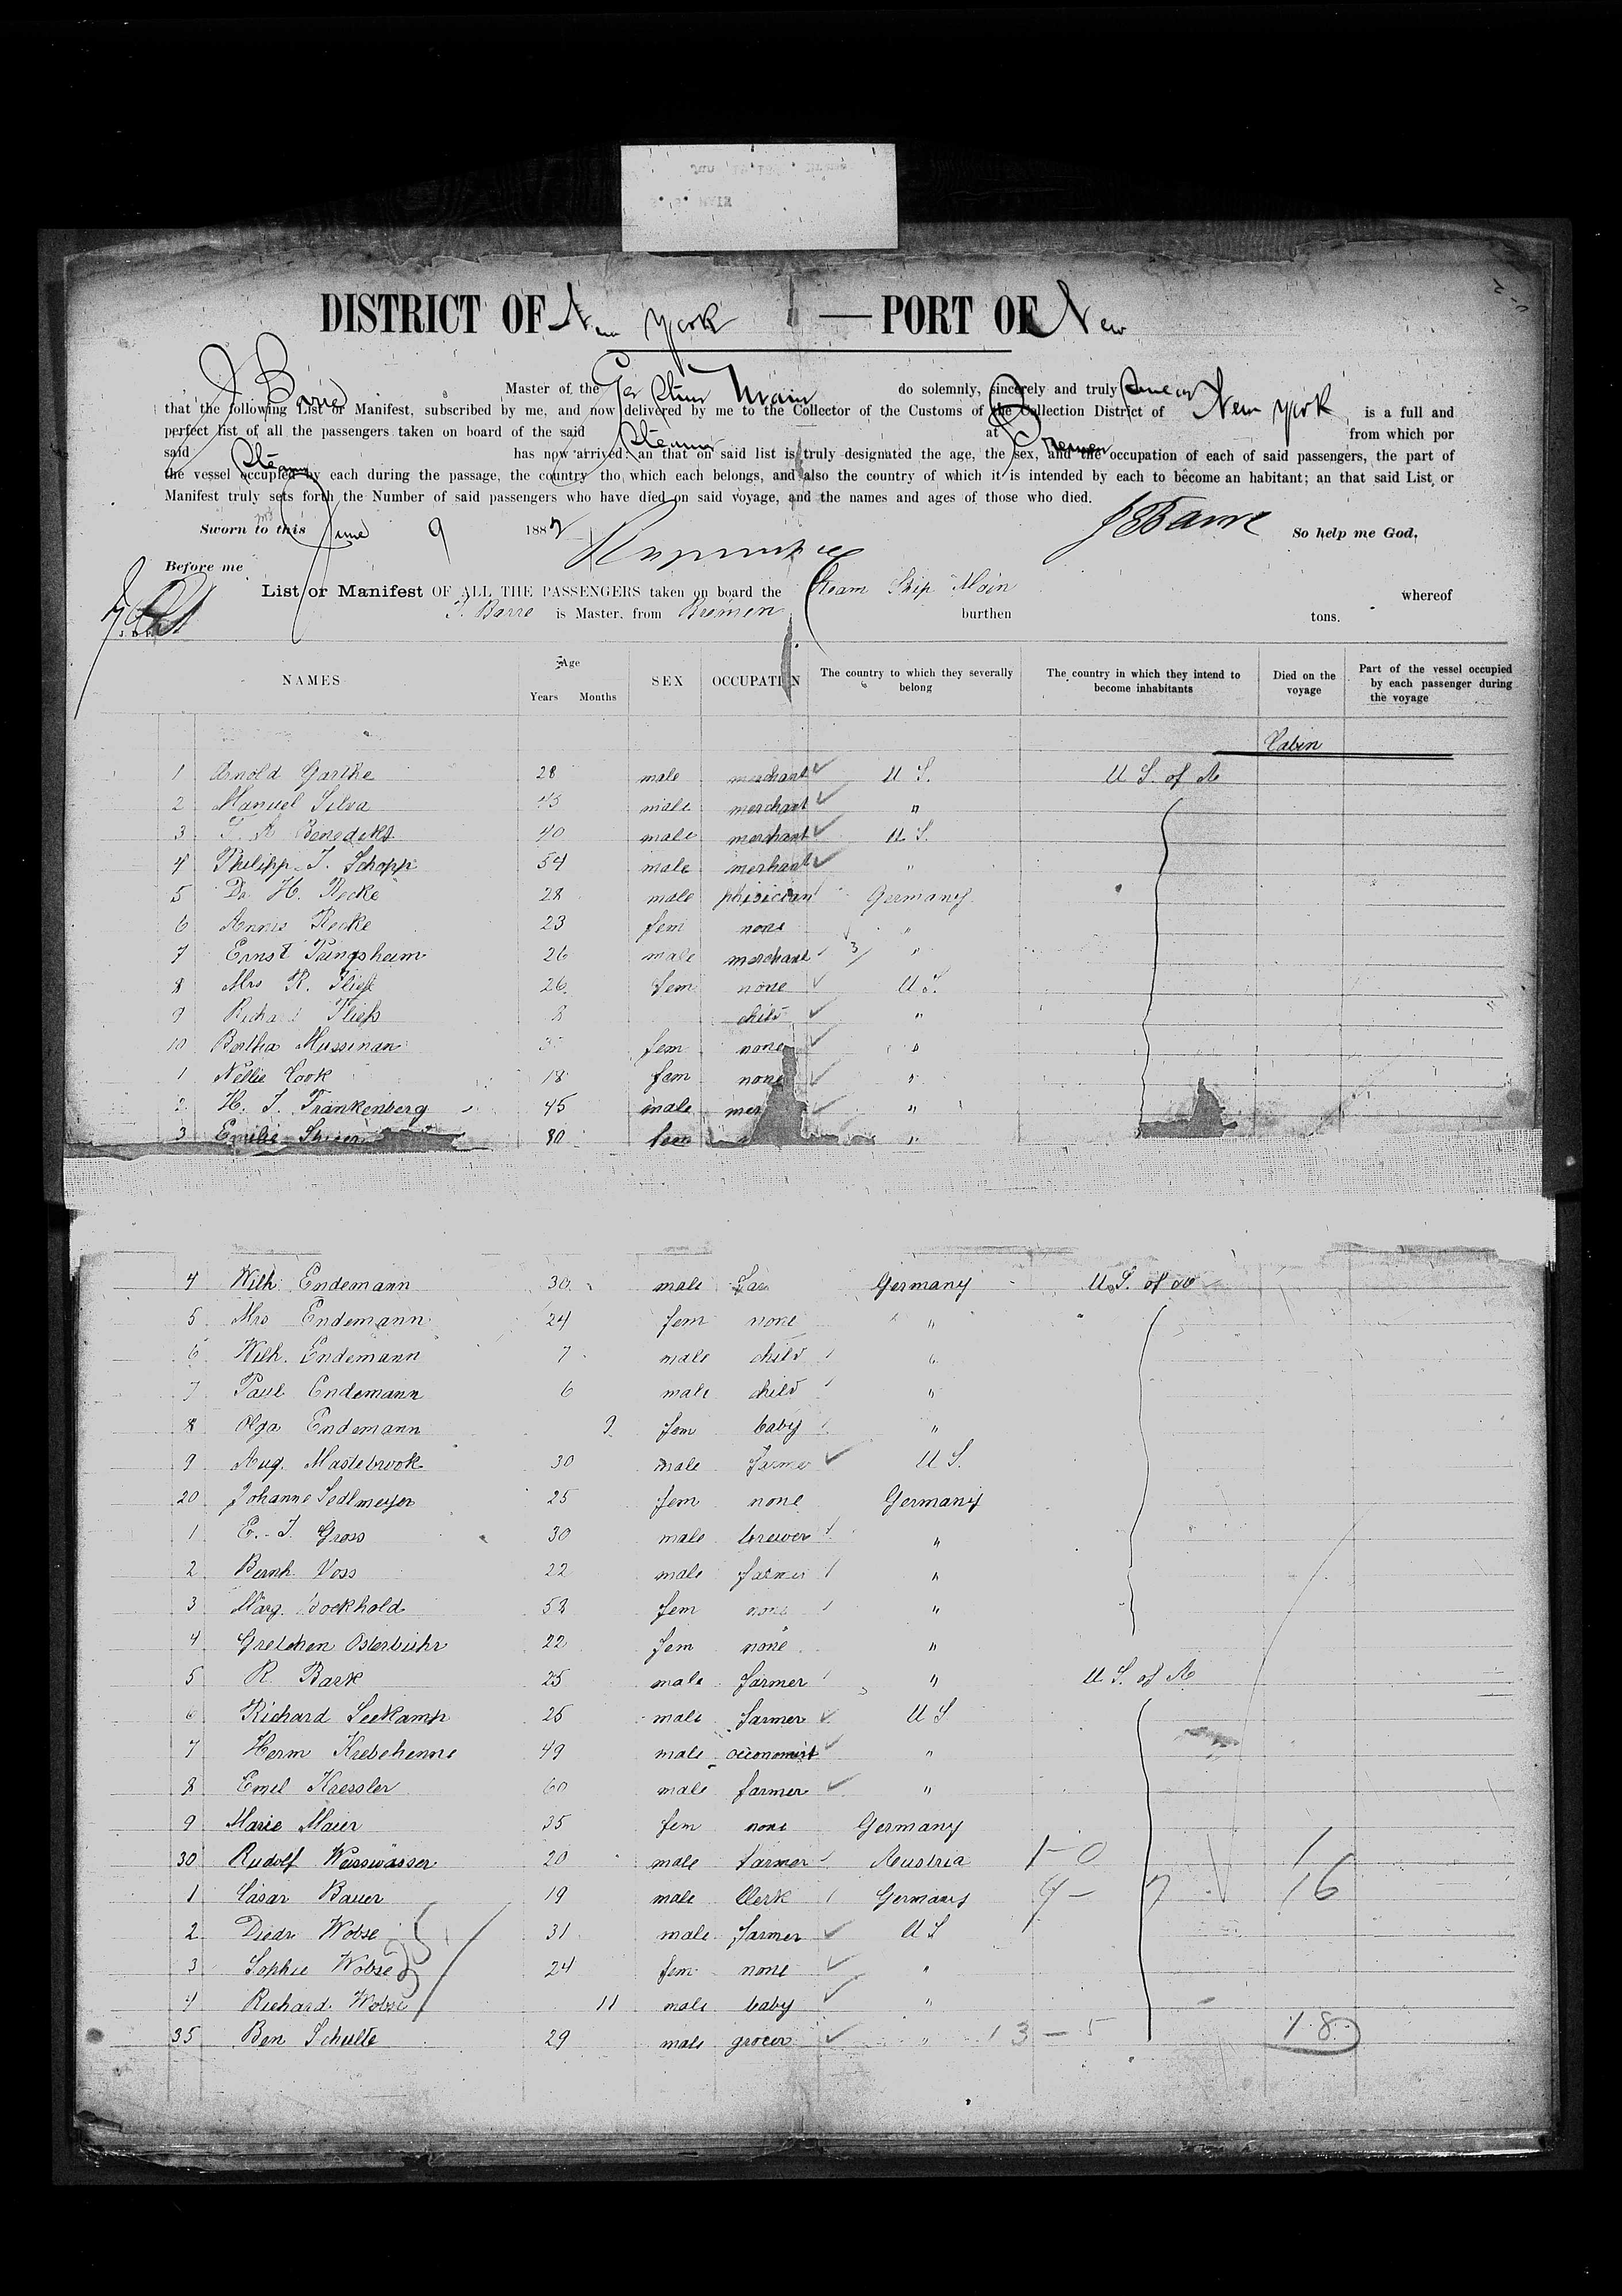 DISTRICT OF New York — PORT OF New
J Barre Master of the Ger Stmr Main do solemnly, sincerely and truly swear
that the following List or Manifest, subscribed by me, and now delivered by me to the Collector of the Customs of the Collection District of New York is a full and
perfect list of all the passengers taken on board of the said Steamer at Bremen from which por
said Steamer has now arrived: an that on said list is truly designated the age, the sex, and the occupation of each of said passengers, the part of
the vessel occupied by each during the passage, the country tho which each belongs, and also the country of which it is intended by each to become an habitant; an that said List or
Manifest truly sets forth the Number of said passengers who have died on said voyage, and the names and ages of those who died.
Sworn to this June 9 1882 JBarre So help me God.
Before me
List or Manifest OF ALL THE PASSENGERS taken on board the Steam Ship Main whereof
J. Barre is Master, from Bremen burthen tons.
NAMES Age Years Months SEX OCCUPATION The country to which they severally belong The country in which they intend to become inhabitants Died on the voyage Part of the vessel occupied by each passenger during the voyage
Cabin
1 Arnold Garthe 28 male merchant U S. U S. of A
2 Manuel Silva 45 male merchant "
3 Benedicks 40 male merchant U S.
4 Philipp J. Schopp 54 male merhant "
5 Dr. H. Recke 28 male phisician Germany
6 Annis Recke 23 fem none "
7 Ernst Pringsheim 26 male merchant "
8 Mrs R. Fliess 26 fem none U S.
9 Richard Fliess 8 child "
10 Bertha Mussinan fem none "
1 Nellie Cook 18 fem none "
2 H. J. Frankenberg 45 male mer "
3 Emilie 80 fem "
4 Wilh. Endemann 30 male Germany U. S. of A
5 Mrs Endemann 24 fem none "
6 Wilh. Endemann 7 male child "
7 Paul Endemann 6 male child "
8 Olga Endemann 9 fem baby "
9 Aug. Mastebrook 30 male farmer U S.
20 Johanne Sedlmeyer 25 fem none Germany
1 E. J. Gross 30 male brewer "
2 Bernh. Voss 22 male farmer "
3 Marg. Bockhold 52 fem none "
4 Gretchen Osterbuhr 22 fem none "
5 R. Bark 25 male farmer " U S. of A
6 Richard Seekamp 25 male farmer U S
7 Herm Krebehenne 49 male oeconomist "
8 Emil Kressler 60 male farmer "
9 Marie Maier 35 fem none Germany
30 Rudolf Weisswasser 20 male farmer Austria 1-0 1
1 Cäsar Bauer 19 male Clerk Germany 9- 7 16
2 Diedr Wobse 31 male farmer U S
3 Sophie Wobse 24 fem none "
4 Richard Wobse 11 male baby "
35 Ben Schulte 29 male grocer " 13-5 18